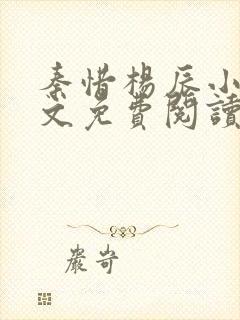 秦惜楊辰小
文免費閱讀
嚴岢